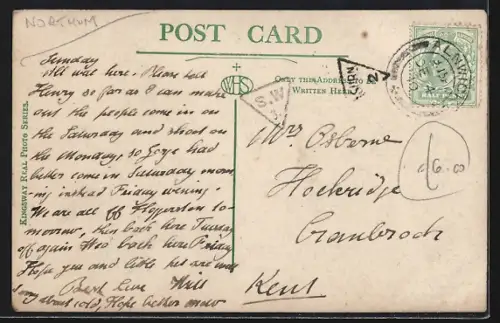 NORTHUM
POST CARD
Sunday
All well here. Please tell
Henry so far as I can make
out the people come in on
the Saturday and shoot on
the Monday, so George had
better come in Saturday morn
ing instead Friday evening.
We are all off to
morrow, then back here Tuesday
off again Wed back here Friday
Hope you and little pet are well
Best love Will
Sorry about cold, Hope better now
KINGSWAY REAL PHOTO SERIES.
WHS
ONLY THE ADDRESS TO BE
WRITTEN HERE.
S.W
ALNWICK
Mrs Osborne
Hockridge
Cranbrook
Kent
6.0